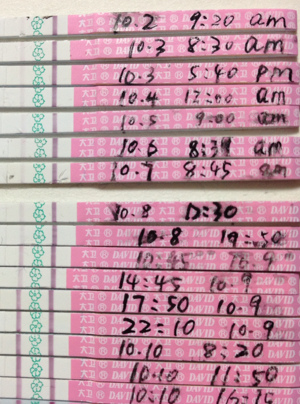 10.2 9:20 am
10.3 8:30 am
10.3 5:40 pm
10.4 am
10.5 9:00 am
10.6 am
10.7 8:45 am
10.8
10.8 19:50
10.9
14:45 10.9
17:50 10.9
22:10 10.9
10.10 8:20
10.10 11:50
10:10
大卫 ® DAVID